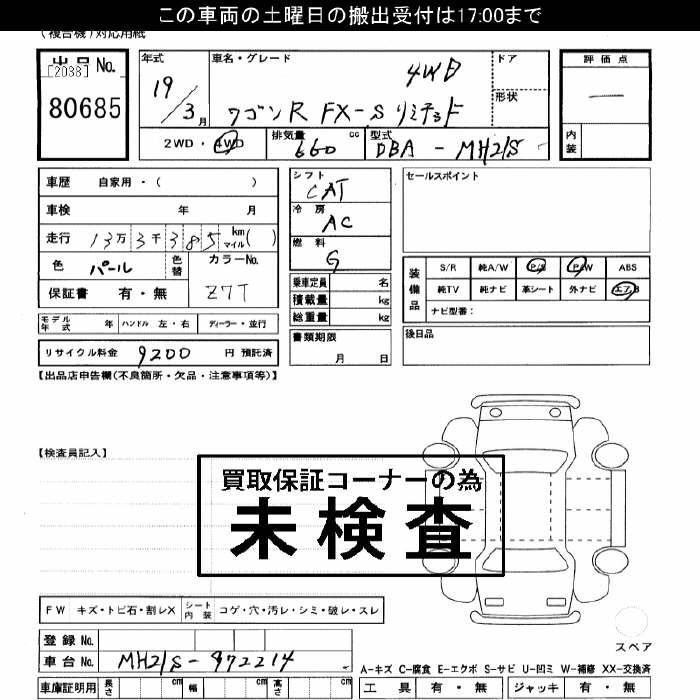 この車両の土曜日の搬出受付は17:00まで
(複合機)対応用紙
出品No.
[2088]
80685
年式
19/3月
車名・グレード
4WD
ワゴンR FX-S リミテッド
ドア
形状
評価点
内装
2WD・4WD
排気量 660 cc
型式 DBA - MH21S
車歴 自家用・( )
車検 年 月
走行 13万3千385 km マイル( )
色 パール 色替
カラーNo. Z7T
保証書 有・無
シフト CAT
冷房 AC
燃料 G
乗車定員 名
積載量 kg
総重量 kg
セールスポイント
装備品
S/R 純A/W P/S P/W ABS
純TV 純ナビ 革シート 外ナビ エアB
ナビ型番:
モデル年式 年 ハンドル 左・右 ディーラー・並行
書類期限 月 日
後日品
リサイクル料金 9200 円 預託済
【出品店申告欄(不良箇所・欠品・注意事項等)】
【検査員記入】
買取保証コーナーの為
未検査
FW キズ・トビ石・割レX シート内装 コゲ・穴・汚レ・シミ・破レ・スレ
スペア
登録 No.
車台 No. MH21S-972214
A-キズ C-腐食 E-エクボ S-サビ U-凹ミ W-補修 XX-交換済
車庫証明用 長さ cm 幅 cm 高さ cm
工具 有・無 ジャッキ 有・無